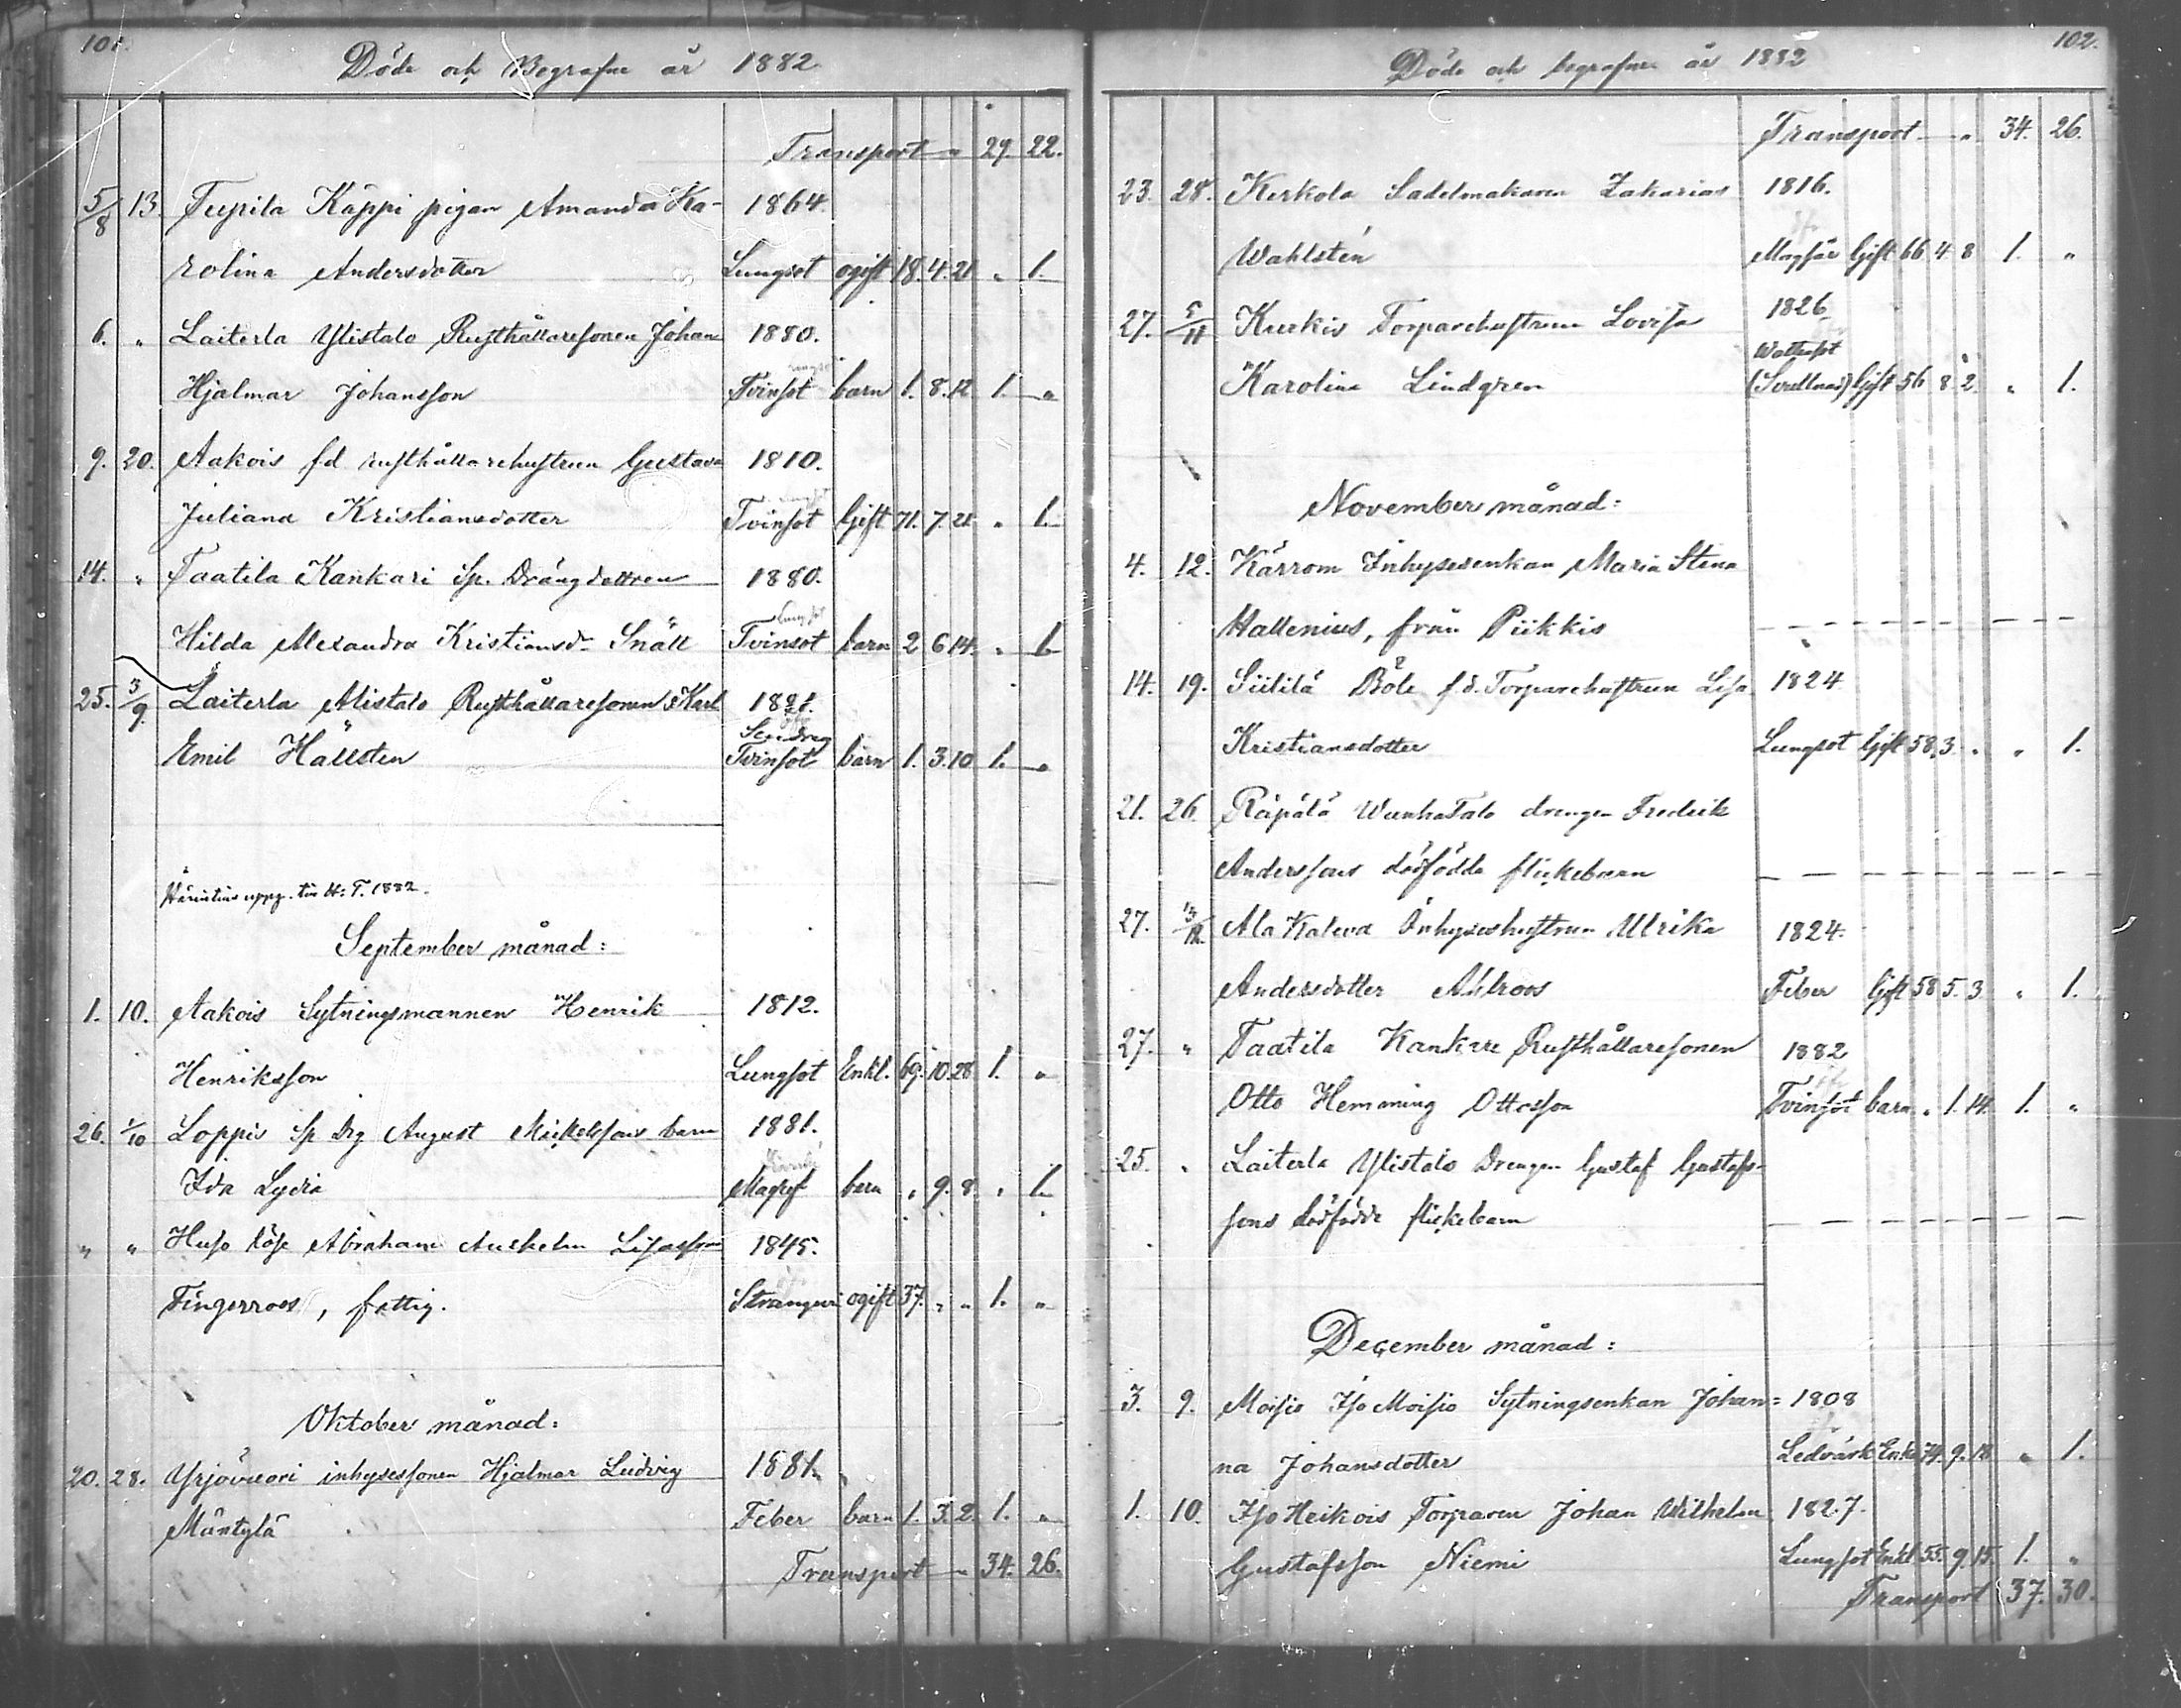 101.
Döde och Begrafne år 1882
Transport " 29. 22.
5/8 13. Tupila Käppi pigan Amanda Ka- 1864.
rolina Andersdotter Lungsot ogift 18. 4. 21 " 1.
6. " Laiterla Ylistalo Rusthållaresonen Johan 1880.
Hjalmar Johansson Tvinsot barn 1. 8. 12 1. "
9. 20. Aakois fd rusthållarehustrun Gustava 1810.
Juliana Kristiansdotter Tvinsot Gift 71. 7. 21 " 1.
14. " Taatila Kankari Sp. Drängdottren 1880.
Hilda Alexandra Kristiansdr Snäll Tvinsot barn 2 6 14. " 1.
25. 3/9. Laiterla Alistalo Rusthållaresonen Karl 1881.
Emil Hällsten Tvinsot barn 1. 3. 10 1. "
Härintills uppg. till H: T. 1882.
September månad:
1. 10. Aakois Sytningsmannen Henrik 1812.
Henriksson Lungsot Enkl. 69. 10. 28 1. "
26. 1/10 Loppis Sp Drg August Mickelssons barn 1881.
Ida Lydia Magref barn " 9. 8. " 1.
" " Huso löse Abraham Anshelm Lisasson 1845.
Fingerroos, fattig. Stranguri ogift 37. " " 1. "
Oktober månad:
20. 28. Yrjövuori inhysessonen Hjalmar Ludvig 1881.
Mäntylä Feber barn 1. 3. 2. 1. "
Transport " 34. 26.
102.
Döde och begrafne år 1882
Transport " 34. 26.
23. 28. Kerkola Sadelmakaren Zakarias 1816.
Wahlstén Magsår Gift 66 4 8 1. "
27. 5/11 Kurkis Torparehustrun Lovisa 1826.
Wattusot
Karolina Lindgren Gift 56 8 2. " 1.
November månad:
4. 12. Kärrom Inhysesenkan Maria Stina
Hallenius, från Piikkis
14. 19. Siitilä Böle f.d. Torparehustrun Lisa 1824
Kristiansdotter Lungsot Gift 58. 3. " " 1.
21. 26. Räpälä WanhaTalo drengen Fredrik
Anderssons dödfödda flickebarn
27. 3/12. Ala Kaleva Inhyseshustrun Ulrika 1824.
Andersdotter Ahlroos Feber Gift 58 5. 3 " 1.
27. " Taatila Kankare Rusthållaresonen 1882
Otto Hemming Ottosson Tvinsot barn " 1. 14. 1. "
25. " Laiterla Ylistalo Drengen Gustaf Gustafs-
sons dödfödde flickebarn
December månad:
3. 9. Moisio Iso Moisio Sytningsenkan Johan= 1808
na Johansdotter Ledvärk Enka 74. 9. 18 " 1.
1. 10. Iso Heikois Torparen Johan Wilhelm 1827.
Gustafsson Niemi Lungsot Enkl 55. 9. 15. 1. "
Transport 37. 30.